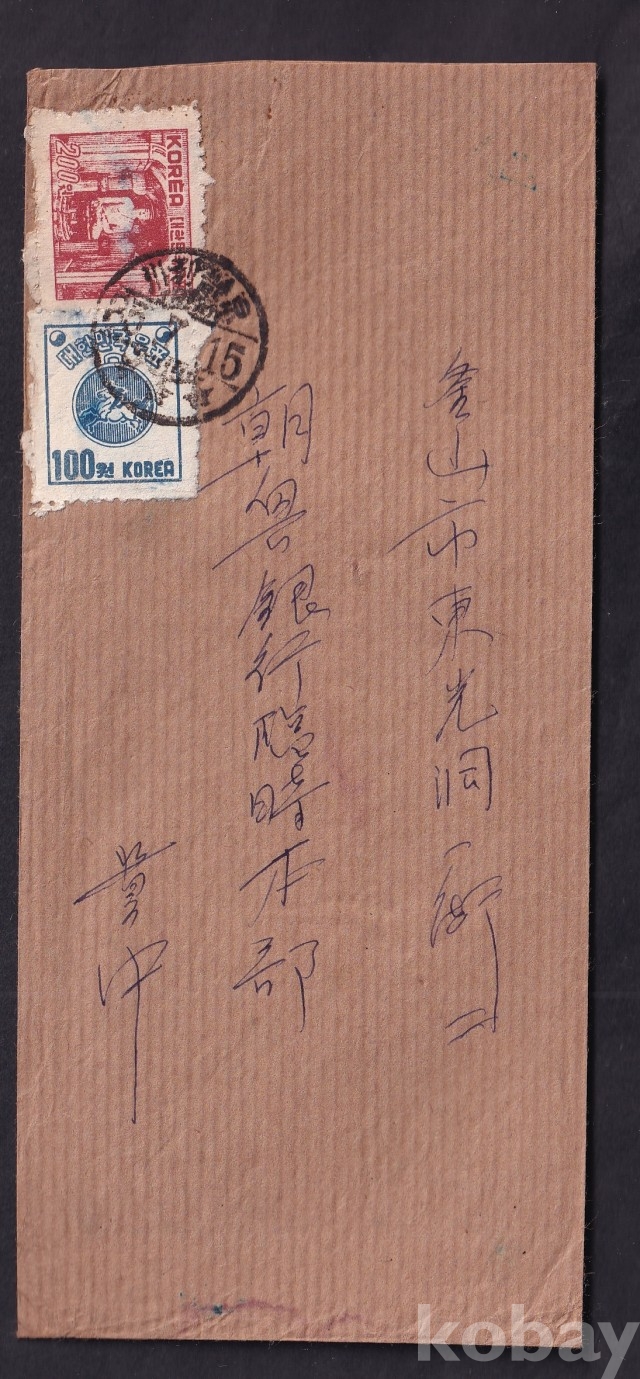 KOREA 대한민
200원
대한민국우표
100원 KOREA
15
釜山市東光洞一街二
朝鮮銀行臨時本部
貴中
kobay